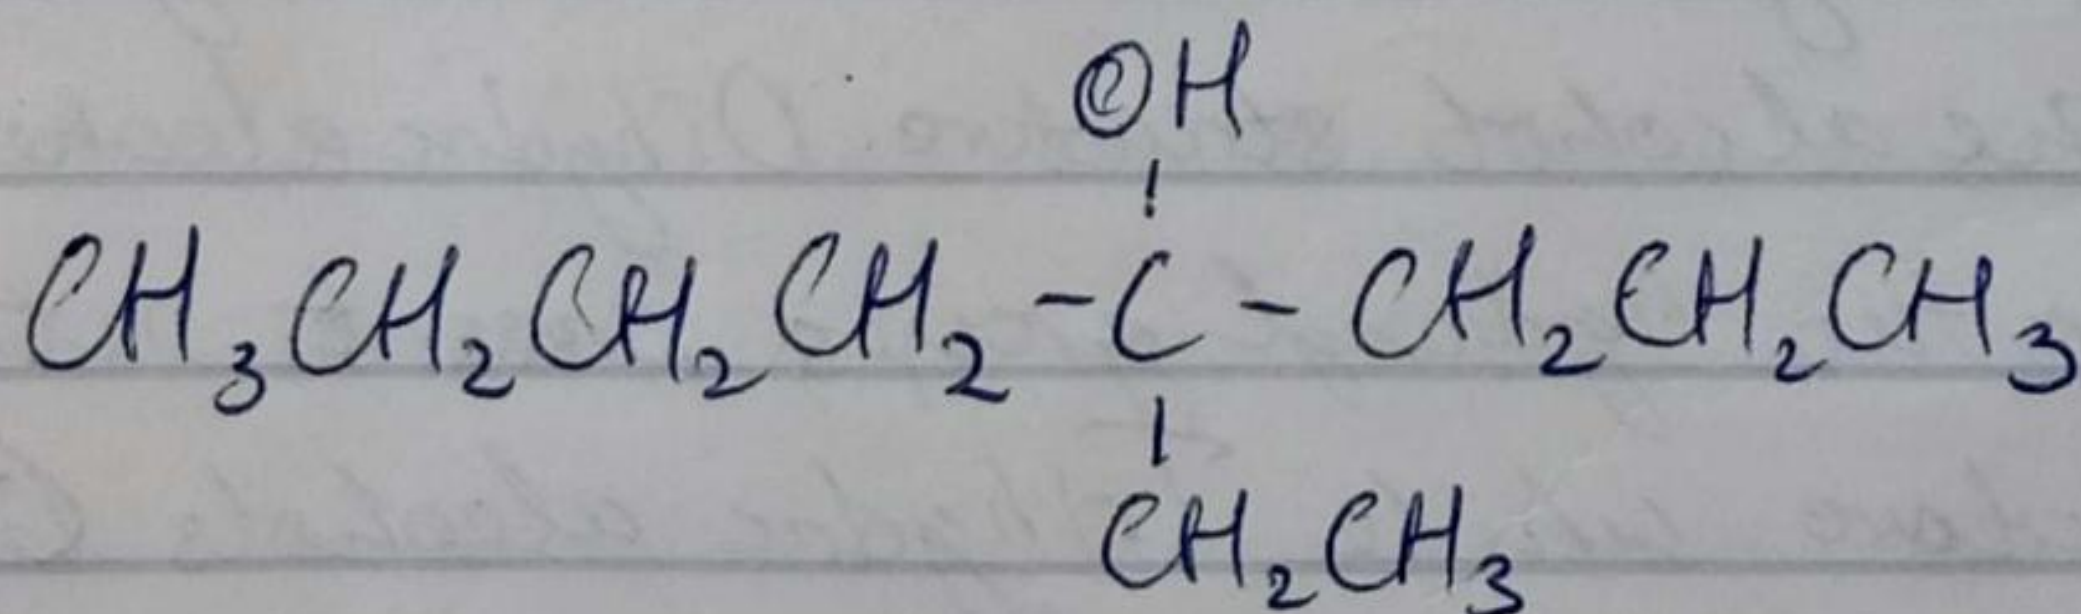 OH
CH₃CH₂CH₂CH₂-C-CH₂CH₂CH₃
CH₂CH₃